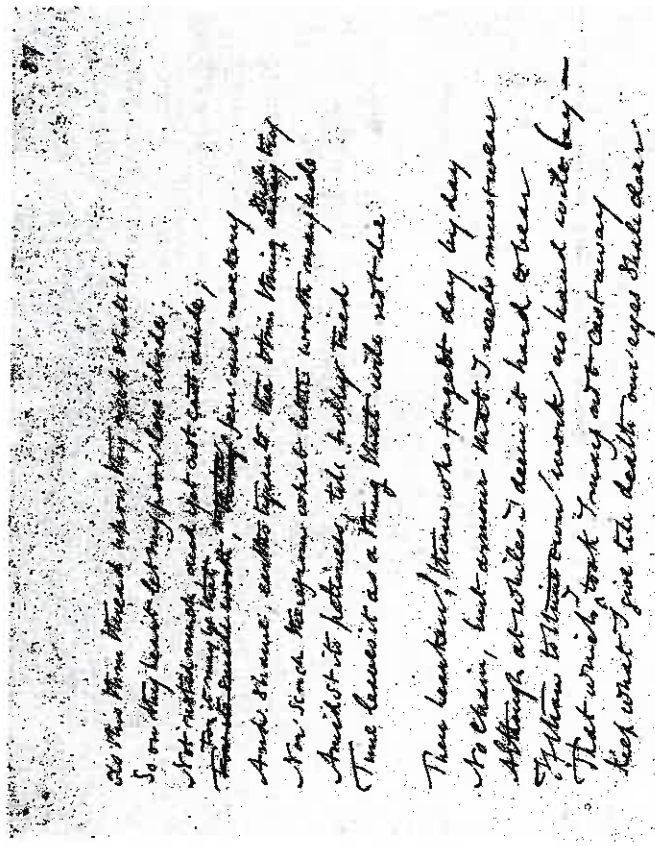 89
As this thin thread upon thy neck shall lie
So on thy heart let my poor love abide.
Not noted much, and yet not cast aside;
For it may be that
fear and mockery
And shame, earth's tyrants, the thin thing shall try
Nor sink therefrom what little worth may hide
Amidst its pettiness, till fully tried
Time leaves it as a thing that will not die
Then hearken! thou who forgest day by day
No chain, but armour that I needs must wear
Although at whiles I deem it hard to bear
If thou to thine own work no hand will lay—
That which I took I may not cast away
Keep what I give till death our eyes shall clear